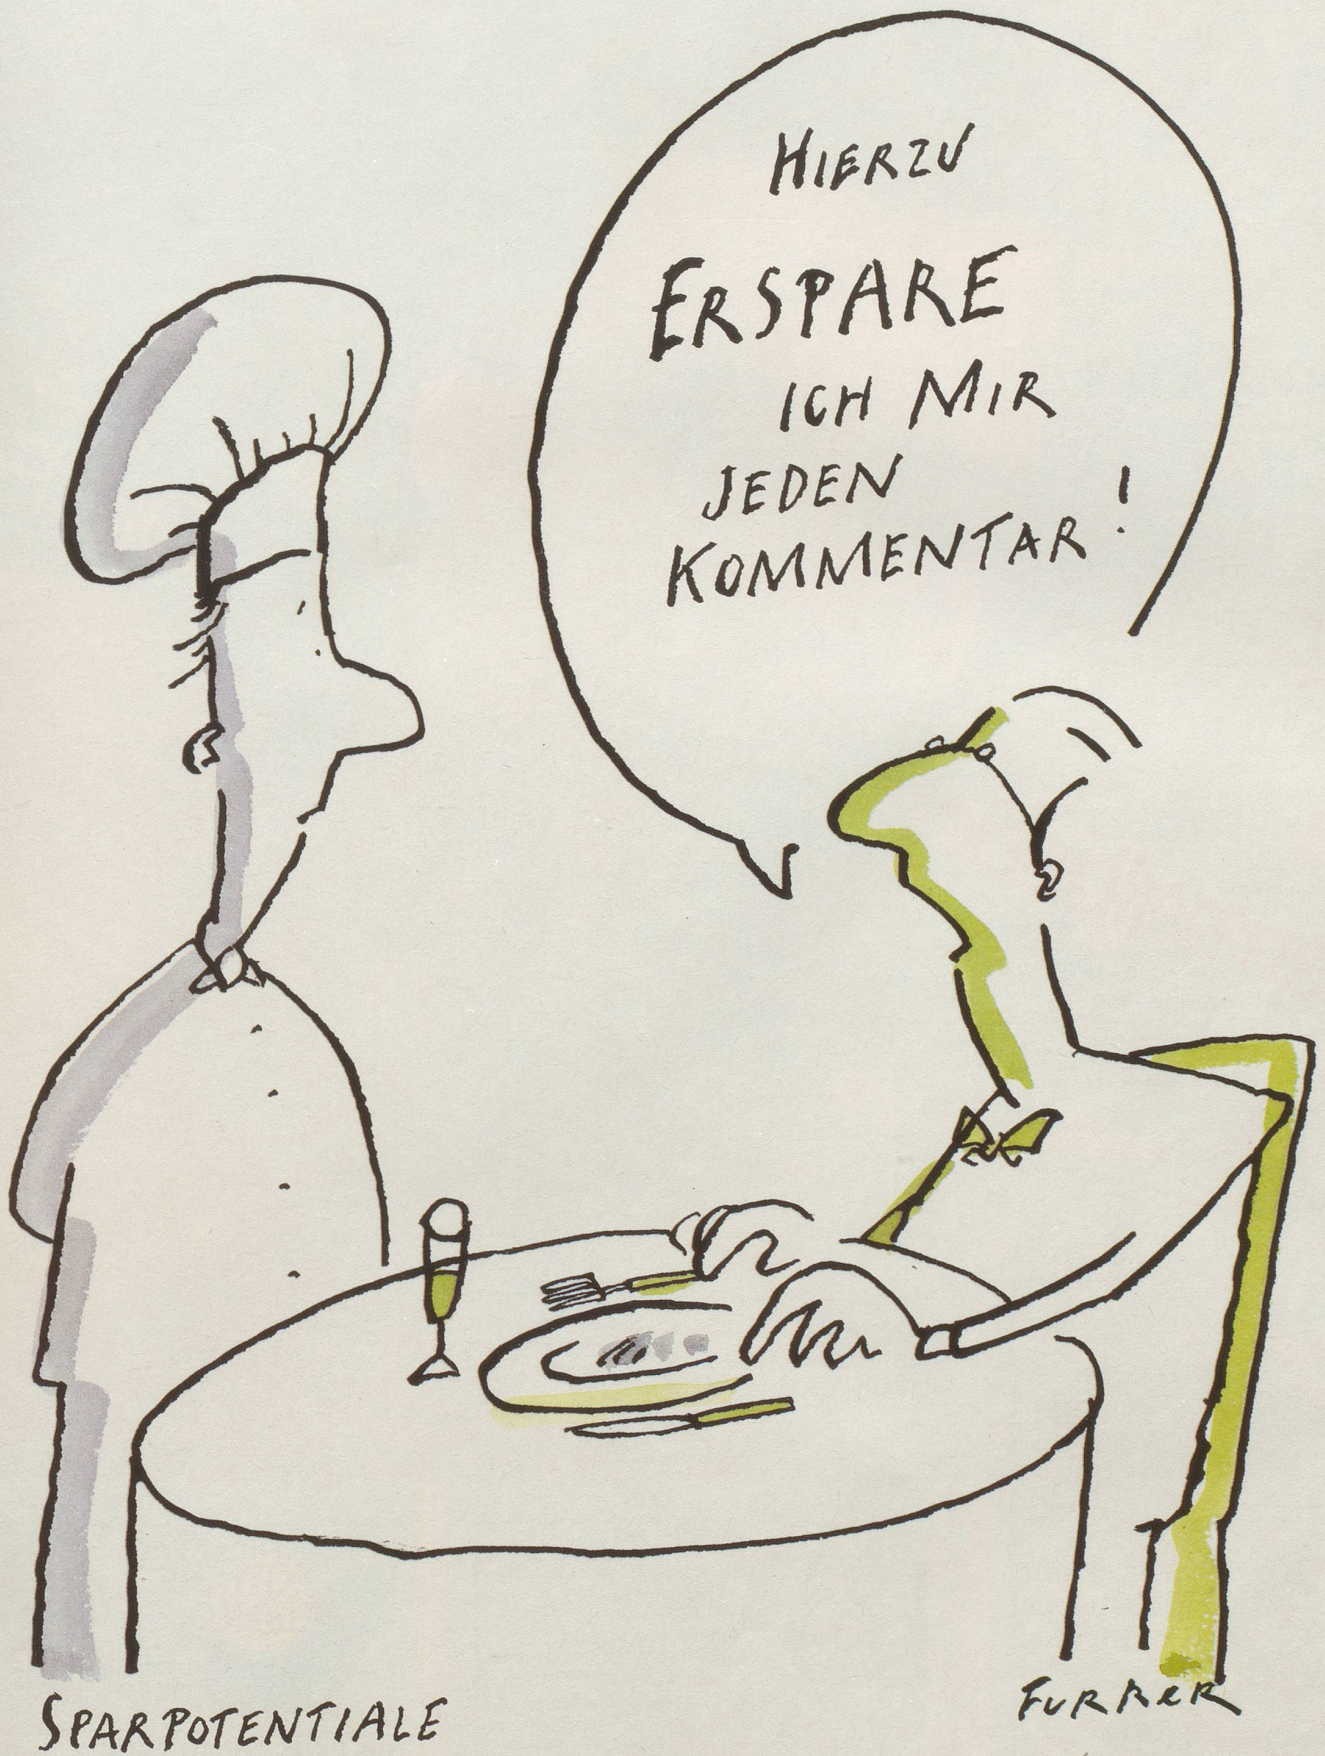 HIERZU
ERSPARE
ICH MIR
JEDEN
KOMMENTAR!
SPARPOTENTIALE
FURRER